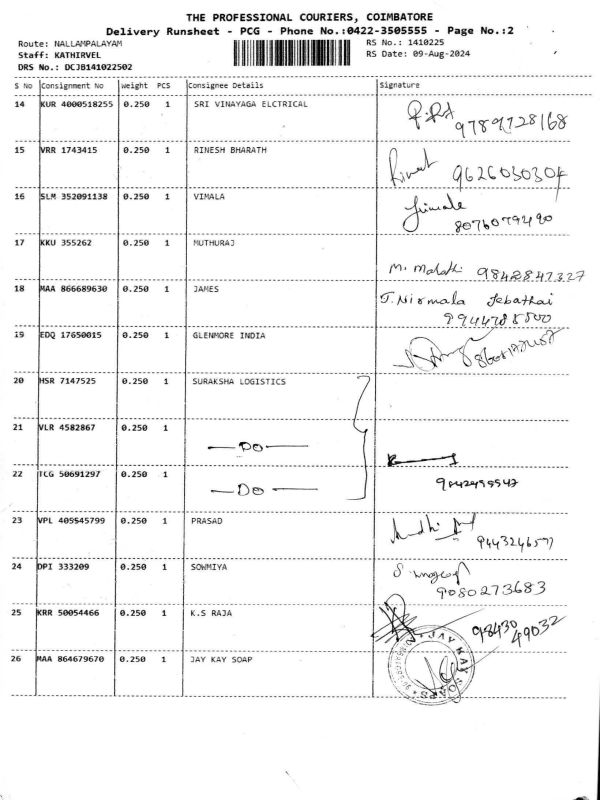 THE PROFESSIONAL COURIERS, COIMBATORE
Delivery Runsheet - PCG - Phone No.:0422-3505555 - Page No.:2
Route: NALLAMPALAYAM
RS No.: 1410225
Staff: KATHIRVEL
RS Date: 09-Aug-2024
DRS No.: DCJB141022502
S No Consignment No Weight PCS Consignee Details Signature
14 KUR 4000518255 0.250 1 SRI VINAYAGA ELCTRICAL
9789728168
15 VRR 1743415 0.250 1 RINESH BHARATH
9626030304
16 SLM 352091138 0.250 1 VIMALA
Vimala
8076079490
17 KKU 355262 0.250 1 MUTHURAJ
M. Malathi 9842847327
18 MAA 866689630 0.250 1 JAMES
J. Nirmala Jebathai
9944785500
19 EDQ 17650015 0.250 1 GLENMORE INDIA
20 HSR 7147525 0.250 1 SURAKSHA LOGISTICS
21 VLR 4582867 0.250 1
— DO —
22 TCG 50691297 0.250 1
— DO —
23 VPL 405545799 0.250 1 PRASAD
24 DPI 333209 0.250 1 SOWMIYA
9080273683
25 KRR 50054466 0.250 1 K.S RAJA
98430
49032
26 MAA 864679670 0.250 1 JAY KAY SOAP
JAY KAY SOAPS